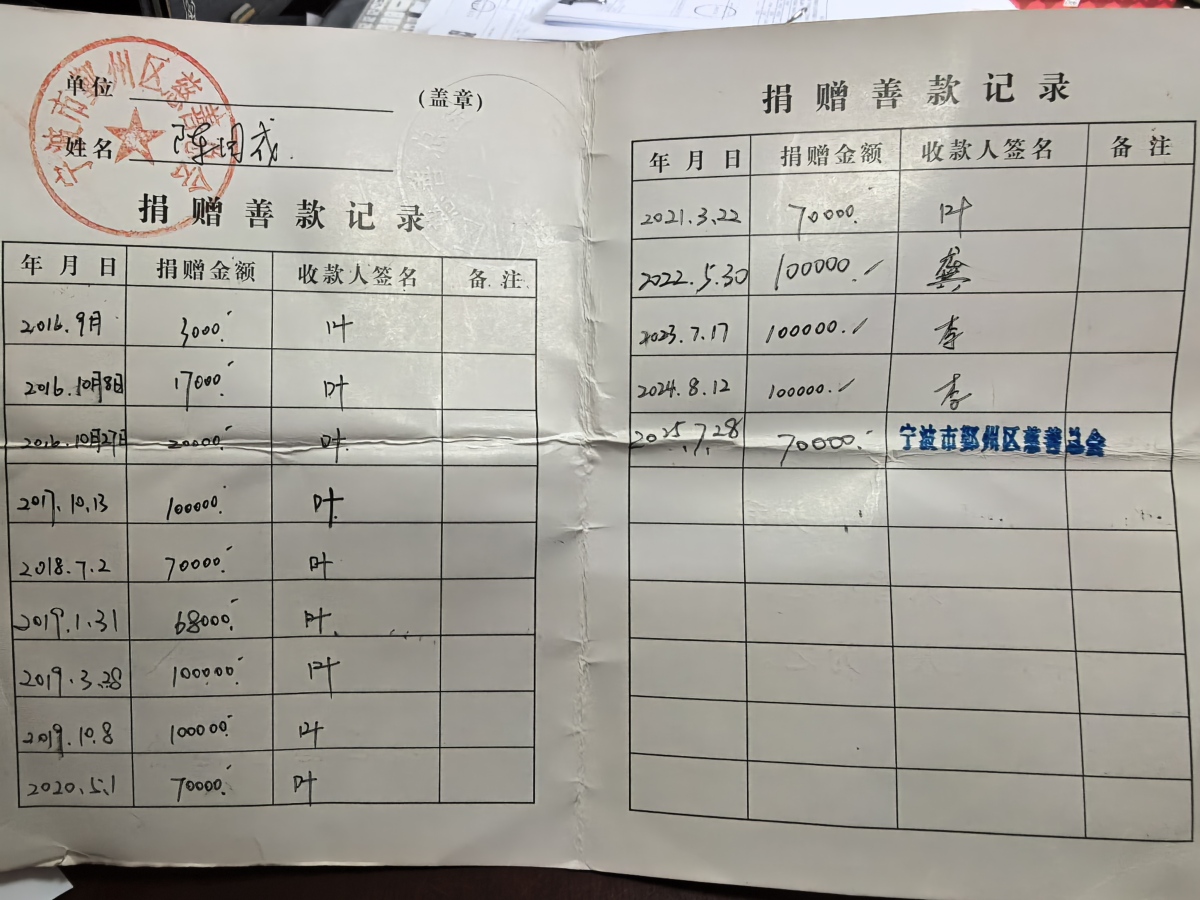 宁波市鄞州区慈善总会
单位 (盖章)
姓名
捐赠善款记录
年月日 捐赠金额 收款人签名 备注
2016.9月 3000.- 叶
2016.10月8日 17000.- 叶
2016.10月27日 20000.- 叶
2017.10.13 100000.- 叶
2018.7.2 70000.- 叶
2019.1.31 68000.- 叶
2019.3.28 100000.- 叶
2019.10.8 100000.- 叶
2020.5.1 70000.- 叶
捐赠善款记录
年月日 捐赠金额 收款人签名 备注
2021.3.22 70000. 叶
2022.5.30 100000.- 龚
2023.7.17 100000.- 李
2024.8.12 100000.- 李
2025.7.28 70000.- 宁波市鄞州区慈善总会